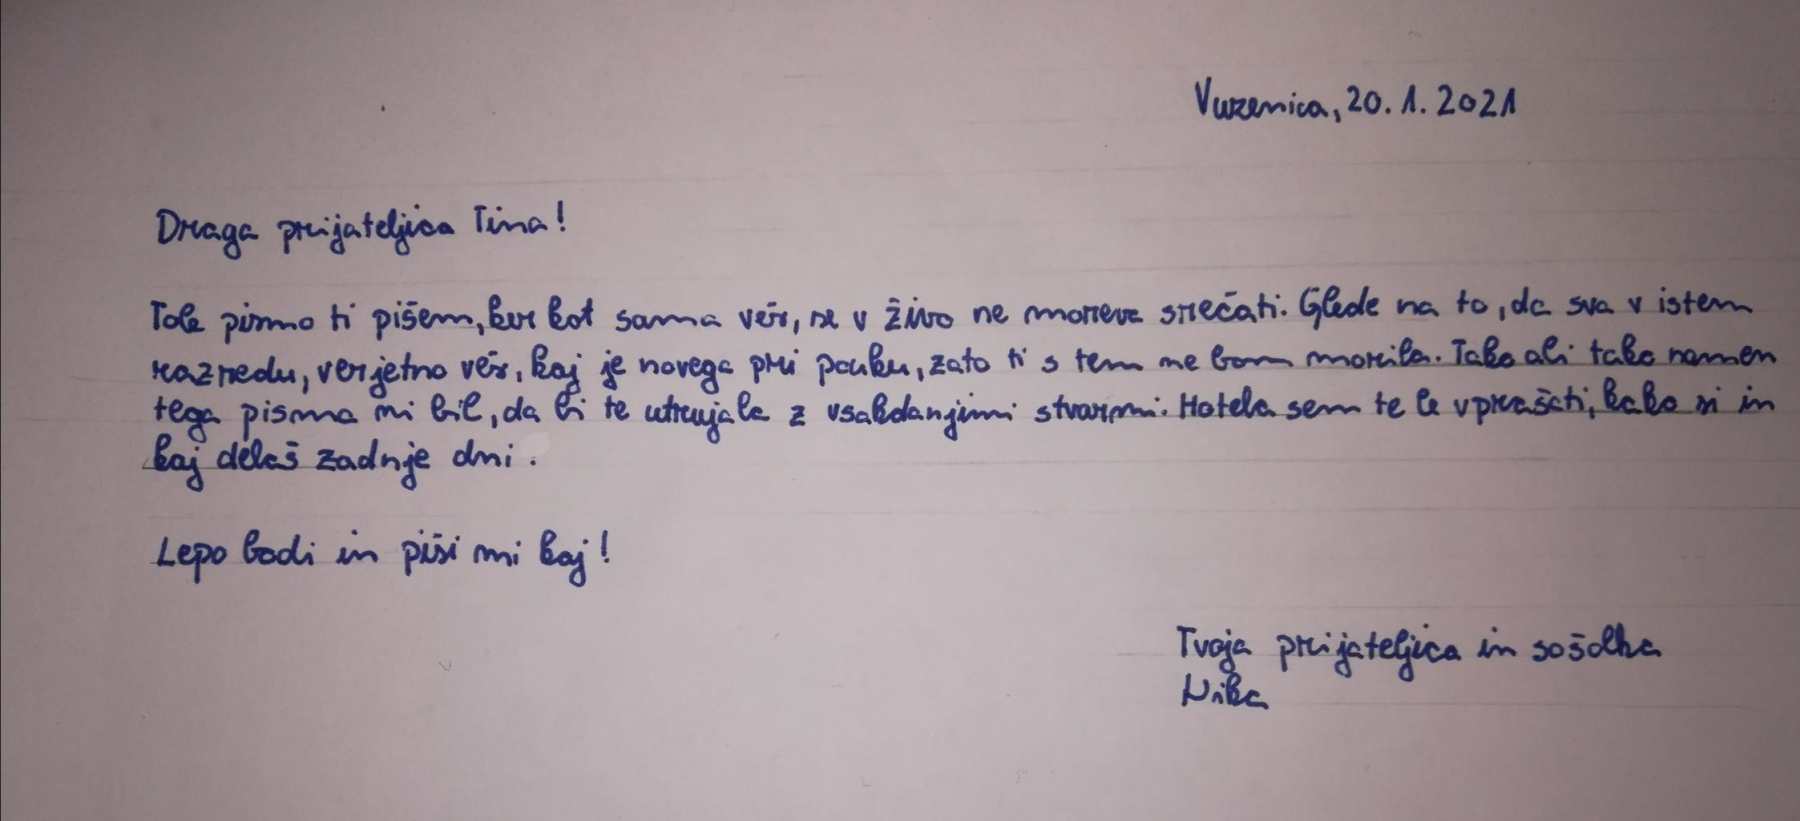 Vuzenica, 20. 1. 2021
Draga prijateljica Tina!
Tole pismo ti pišem, ker kot sama veš, se v živo ne moreva srečati. Glede na to, da sva v istem
razredu, verjetno veš, kaj je novega pri pouku, zato ti s tem ne bom morila. Tako ali tako namen
tega pisma ni bil, da bi te utrujala z vsakdanjimi stvarmi. Hotela sem te le vprašati, kako si in
kaj delaš zadnje dni.
Lepo bodi in piši mi kaj!
Tvoja prijateljica in sošolka
Nika